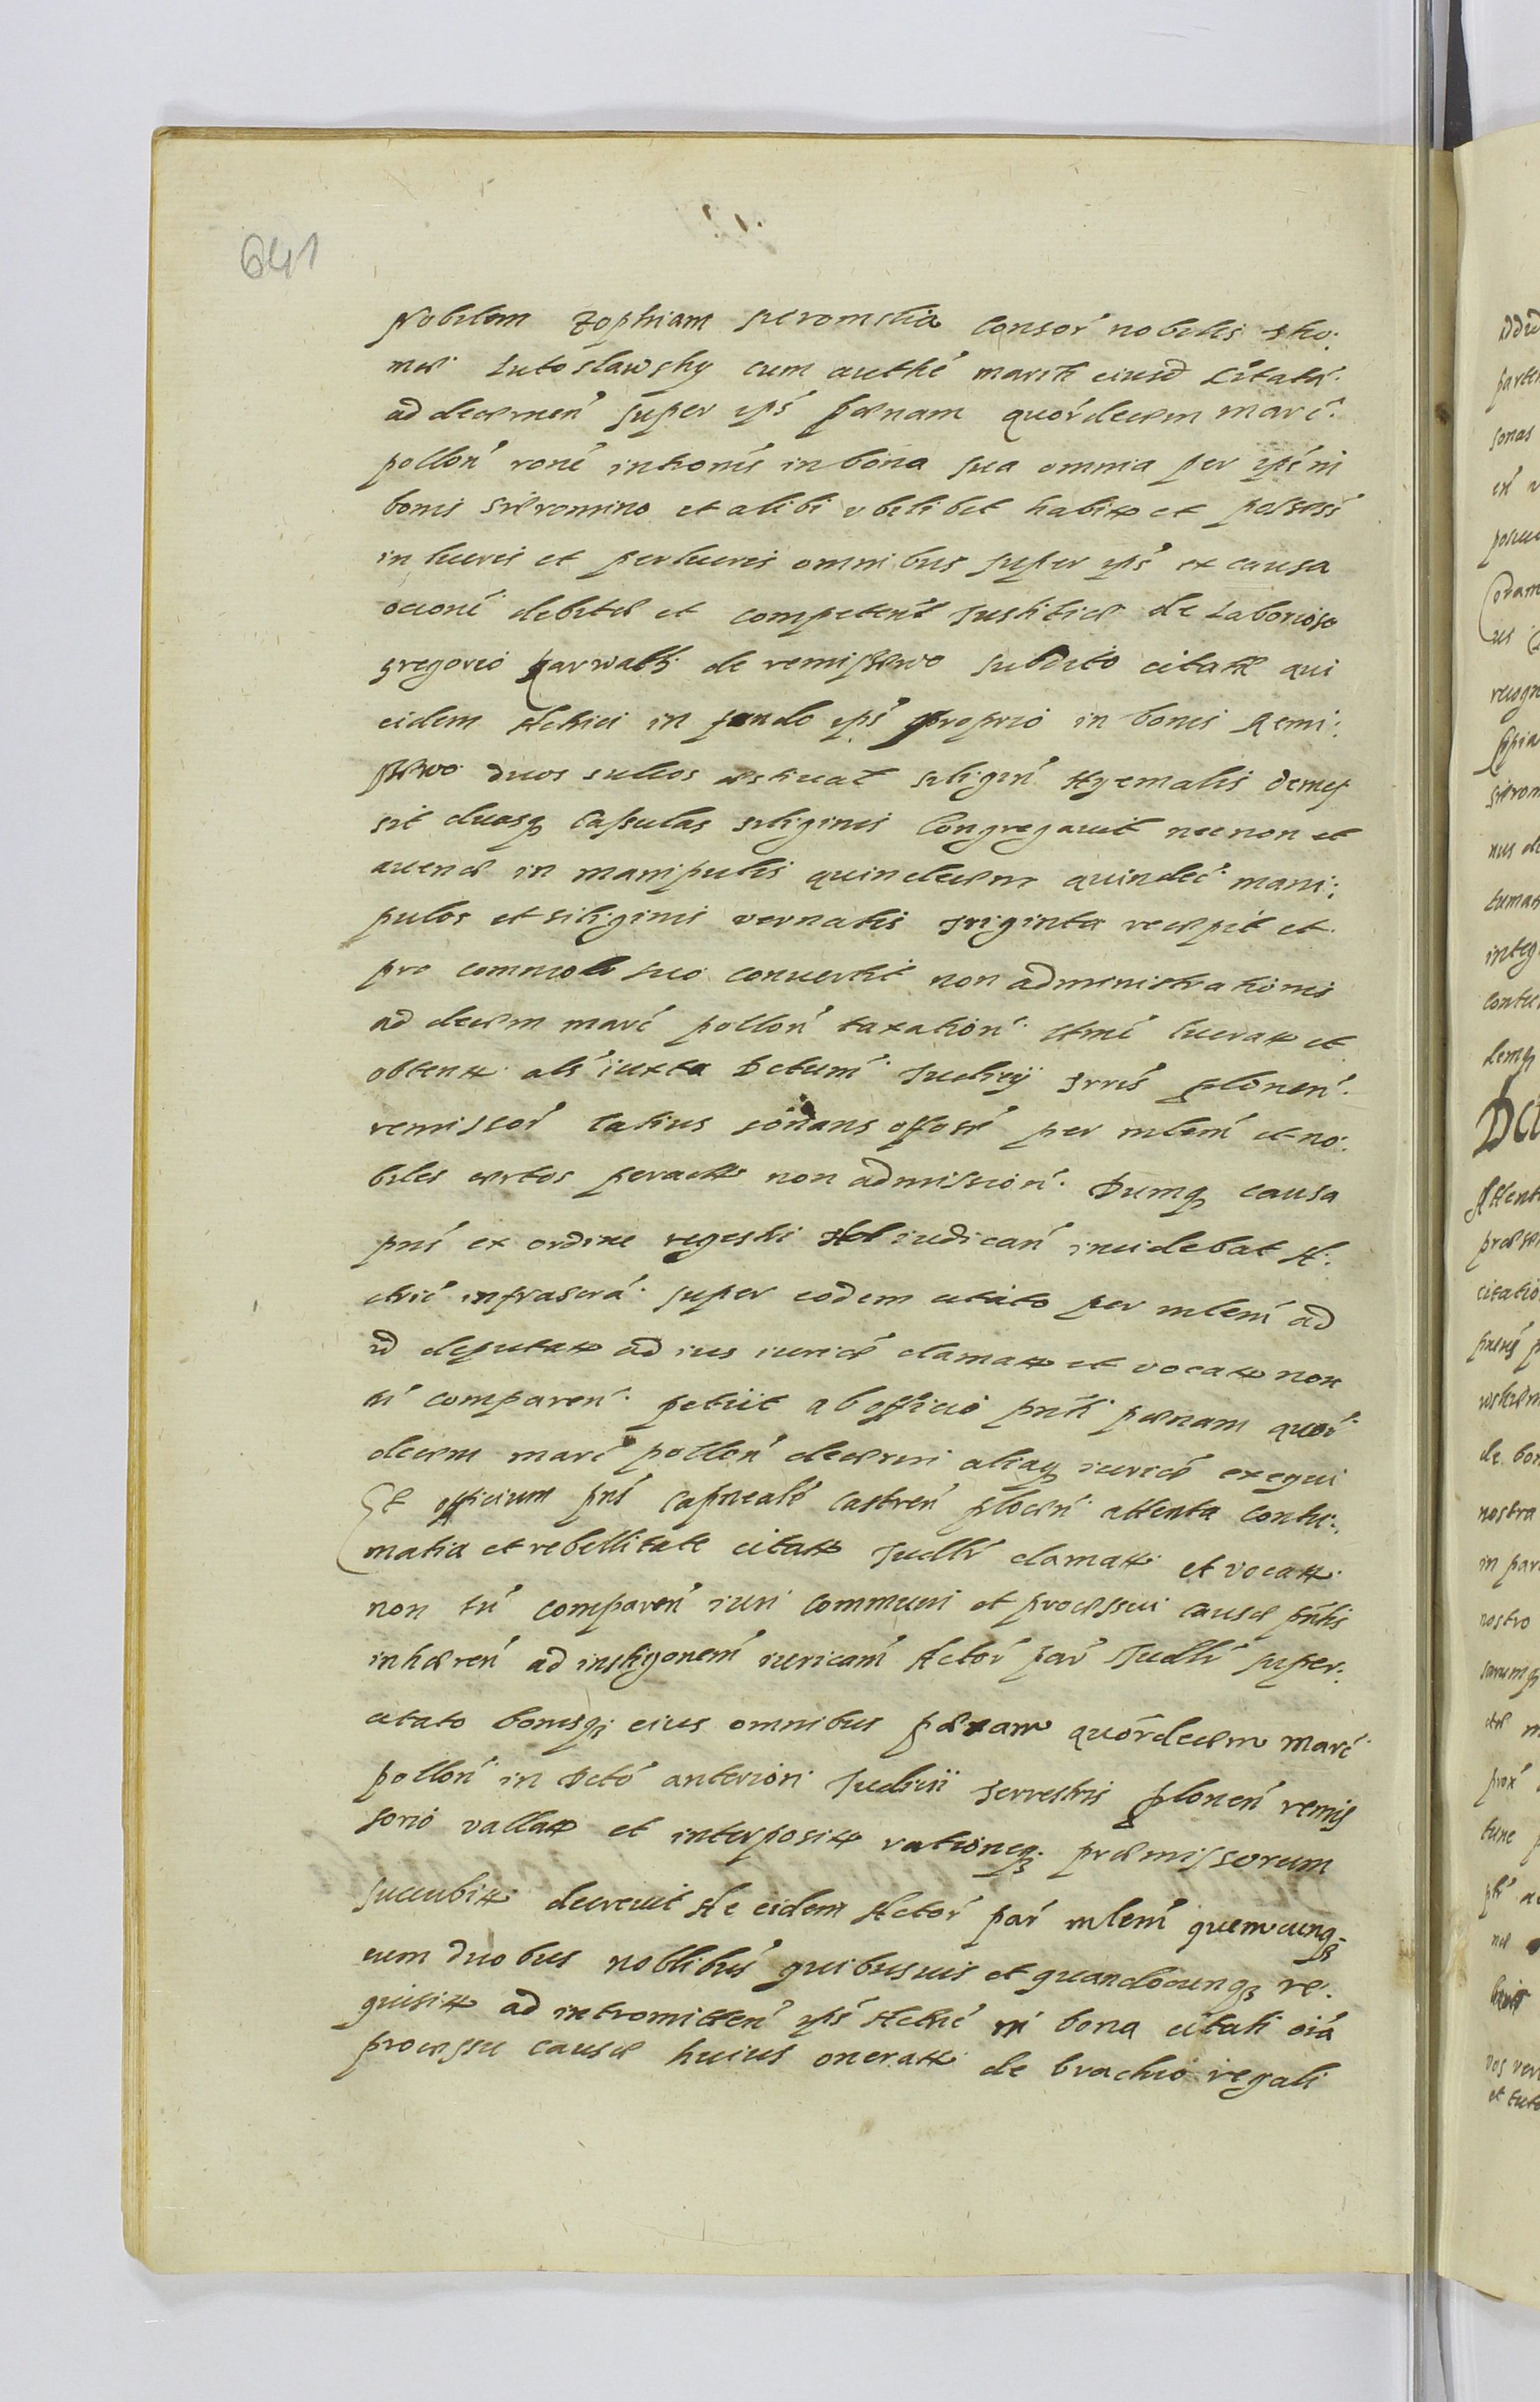 641
Nobilem Zophiam sieromska Consor nobilis tho:
mæ Lutoslawsky cum authe mariti eiusd Citatæ
ad decernen super ips pænam quordecem marc
pollon rone intronis in bona sua omnia per ips in
bonis sieromino et alibi vbilibet habita et possess
in lucris et perlucris omnibus super ips ex causa
ocione debitæ et competent Justitiæ de Laborioso
gregorio parwath de remiszewo subdito citatæ qui
eidem Actrici in fundo ips proprio in bonis Remi:
szewo duos sulcos æstiuat siligin Hyemalis demes
sit duasq Cassulas siliginis Congregauit necnon et
auenæ in manipulis quindecem quindec mani:
pulos et siliginis vernalis triginta recepit et
pro commodo suo conuertit non administrationis
ad decem marc pollon taxation Actrice lucrata et
obtenta als iuxta Dctum Judicij trris plonen
remissor latius sonans offose per mlem et no:
biles certos peracta non admission Dumq causa
pns ex ordine regestri ad iudican incidebat A:
ctric infrascra super eodem citato per mlem ad
id deputat ad ius iurice clamat et vocat non
tn comparen petiit ab officio pnti pænam quor
decem marc pollon decerni aliaq iurice exequi
Et officium pns capneale castren plocen attenta contu:
matia et rebellitate citata Judlr clamata et vocata
non tn comparen iuri communi et processui causæ pntis
inhæren ad instigonem iuricam Actor par Judlr super
citato bonisq eius omnibus pænam quordecem marc
pollon in Dcto anteriori Judicii terrestris plonen remis
sorio vallat et interposit rationeq præmissorum
succubita decreuit Ac eidem Actor par mlem quemcunq
cum duobus noblibus quibusuis et quandocunq re:
quisit ad intromitten ips Actric in bona citati oia
processu causæ huius onerata de brachio regali